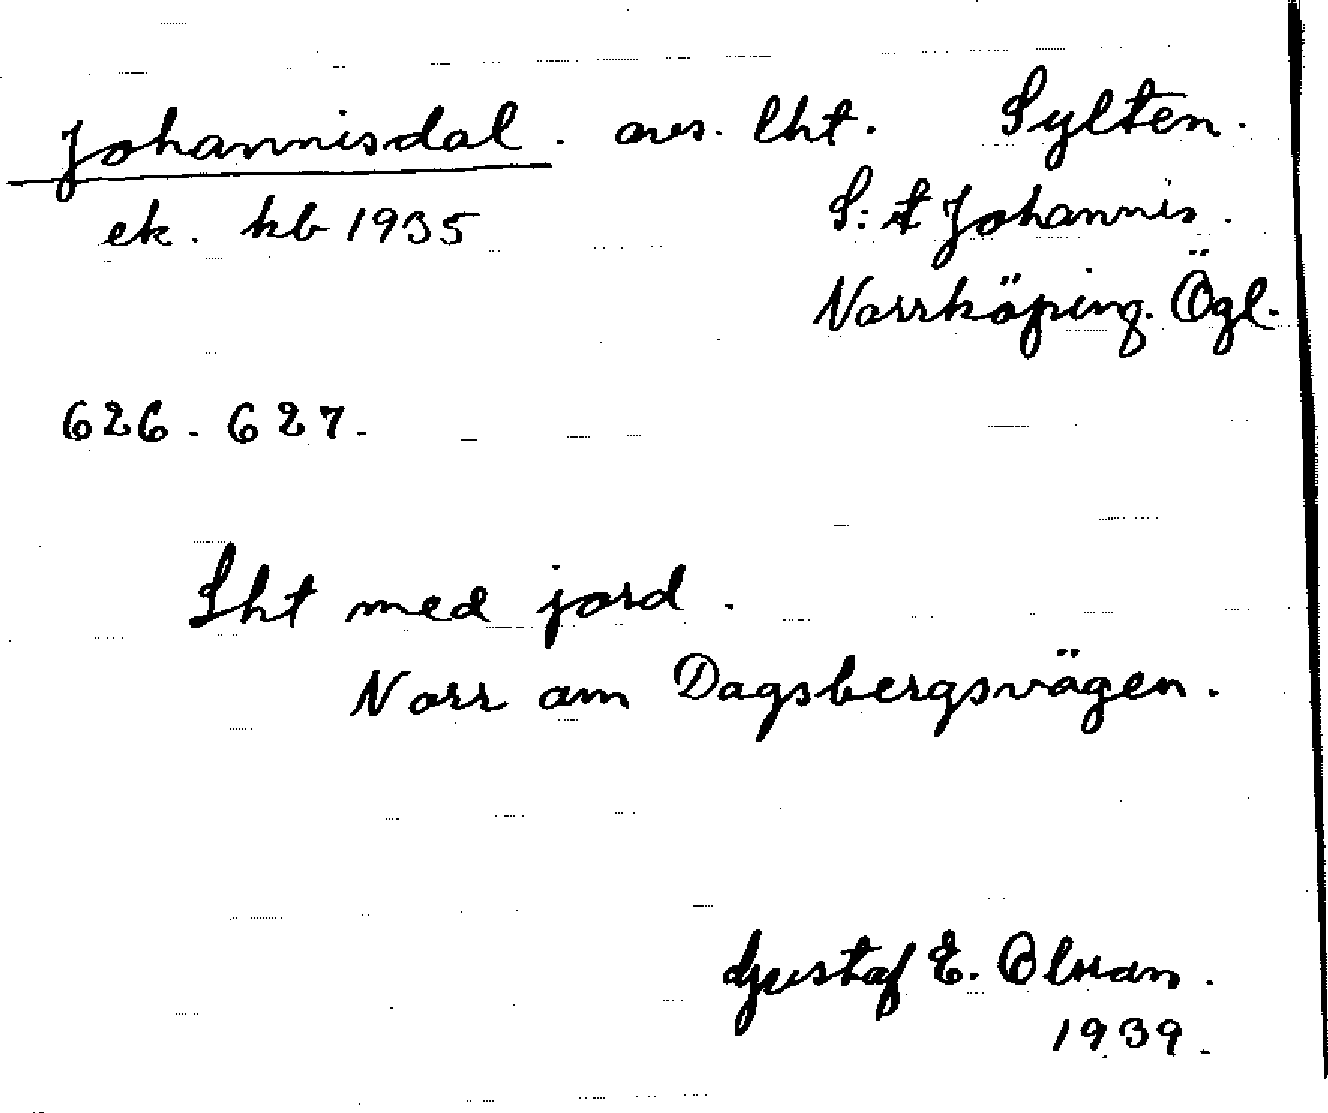 Johannisdal. avs. lht. Sylten.
ek. kb 1935 S:t Johannis.
Norrköping. Ögl.
626. 627.
Lht med jord.
Norr om Dagsbergsvägen.
Gustaf E. Olsson.
1939.